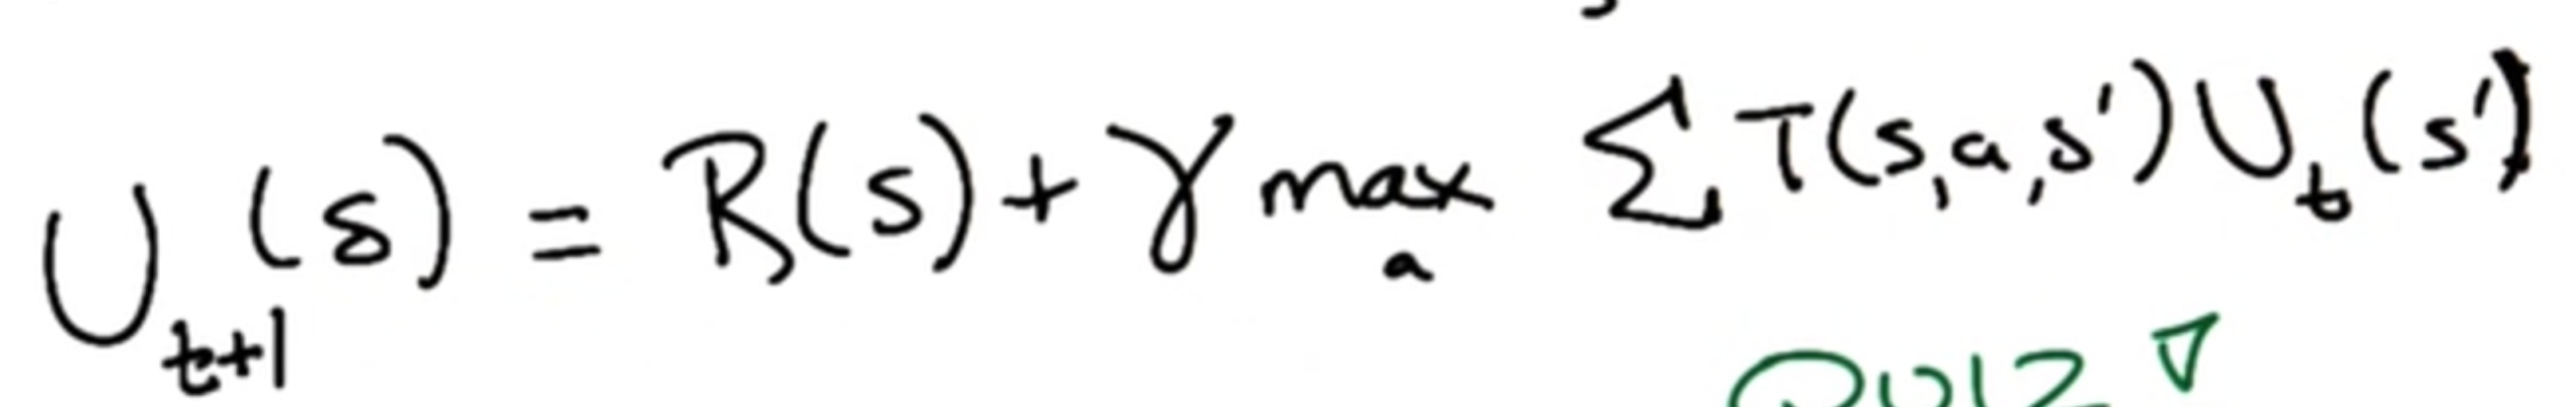 U_{t+1}(s) = R(s) + γ max_a Σ T(s,a,s') U_t(s')
QUIZ